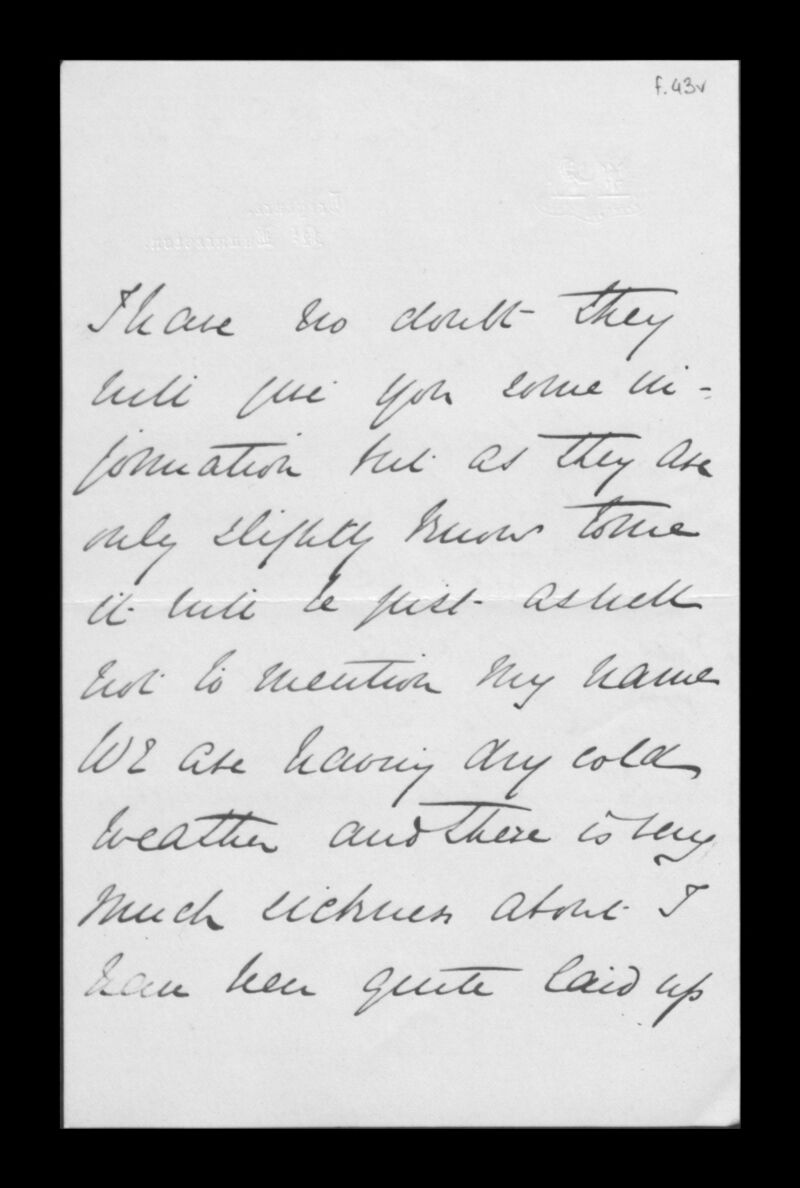 f.43v
I have no doubt they
will give you some in-
formation but as they are
only slightly known to me
it will be just as well
not to mention my name
We are having dry cold
weather and there is very
much sickness about I
have been quite laid up